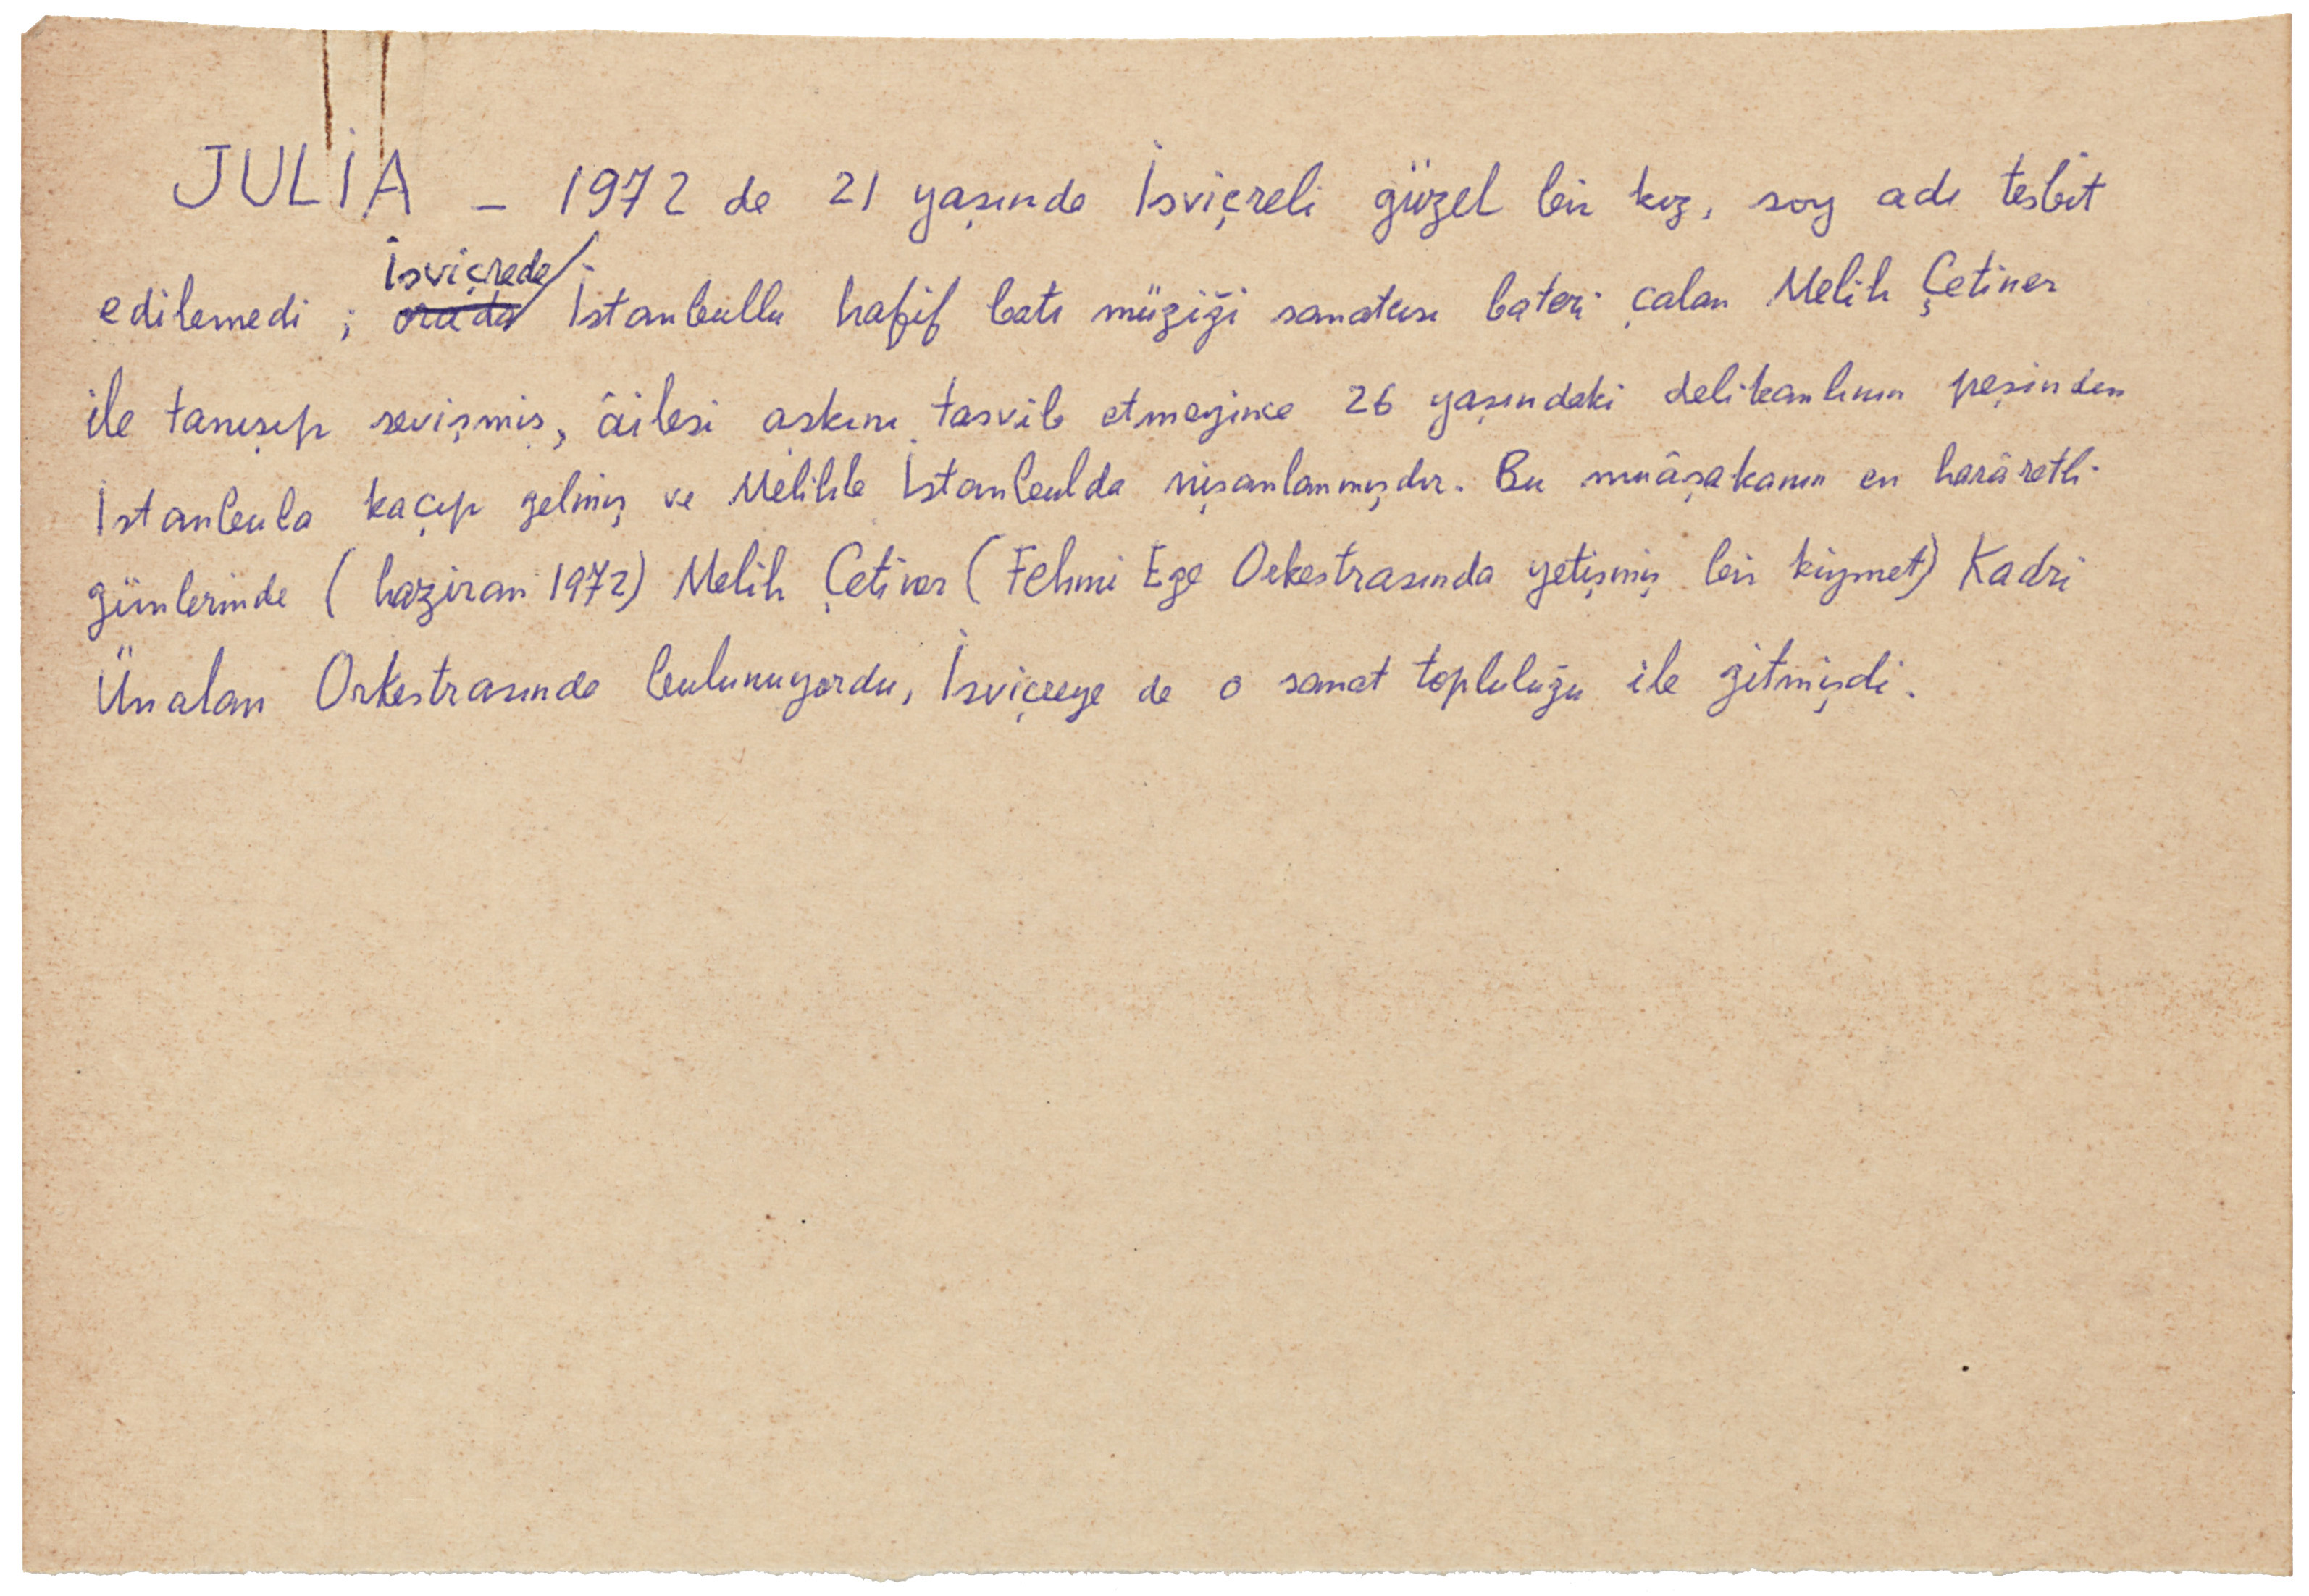 JULİA – 1972 de 21 yaşında İsviçreli güzel bir kız, soy adı tesbit
İsviçrede
edilemedi ; orada İstanbullu hafif batı müziği sanatcısı bateri çalan Melih Çetiner
ile tanışıp sevişmiş, âilesi aşkını tasvib etmeyince 26 yaşındaki delikanlının peşinden
İstanbula kaçıp gelmiş ve Melihle İstanbulda nişanlanmışdır. Bu muâşakanın en harâretli
günlerinde ( haziran 1972) Melih Çetiner ( Fehmi Ege Orkestrasında yetişmiş bir kıymet) Kadri
Ünalan Orkestrasında bulunuyordu, İsviçreye de o sanat topluluğu ile gitmişdi.